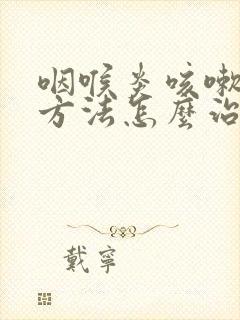 咽喉炎咳嗽
方法怎麼治
戴寧